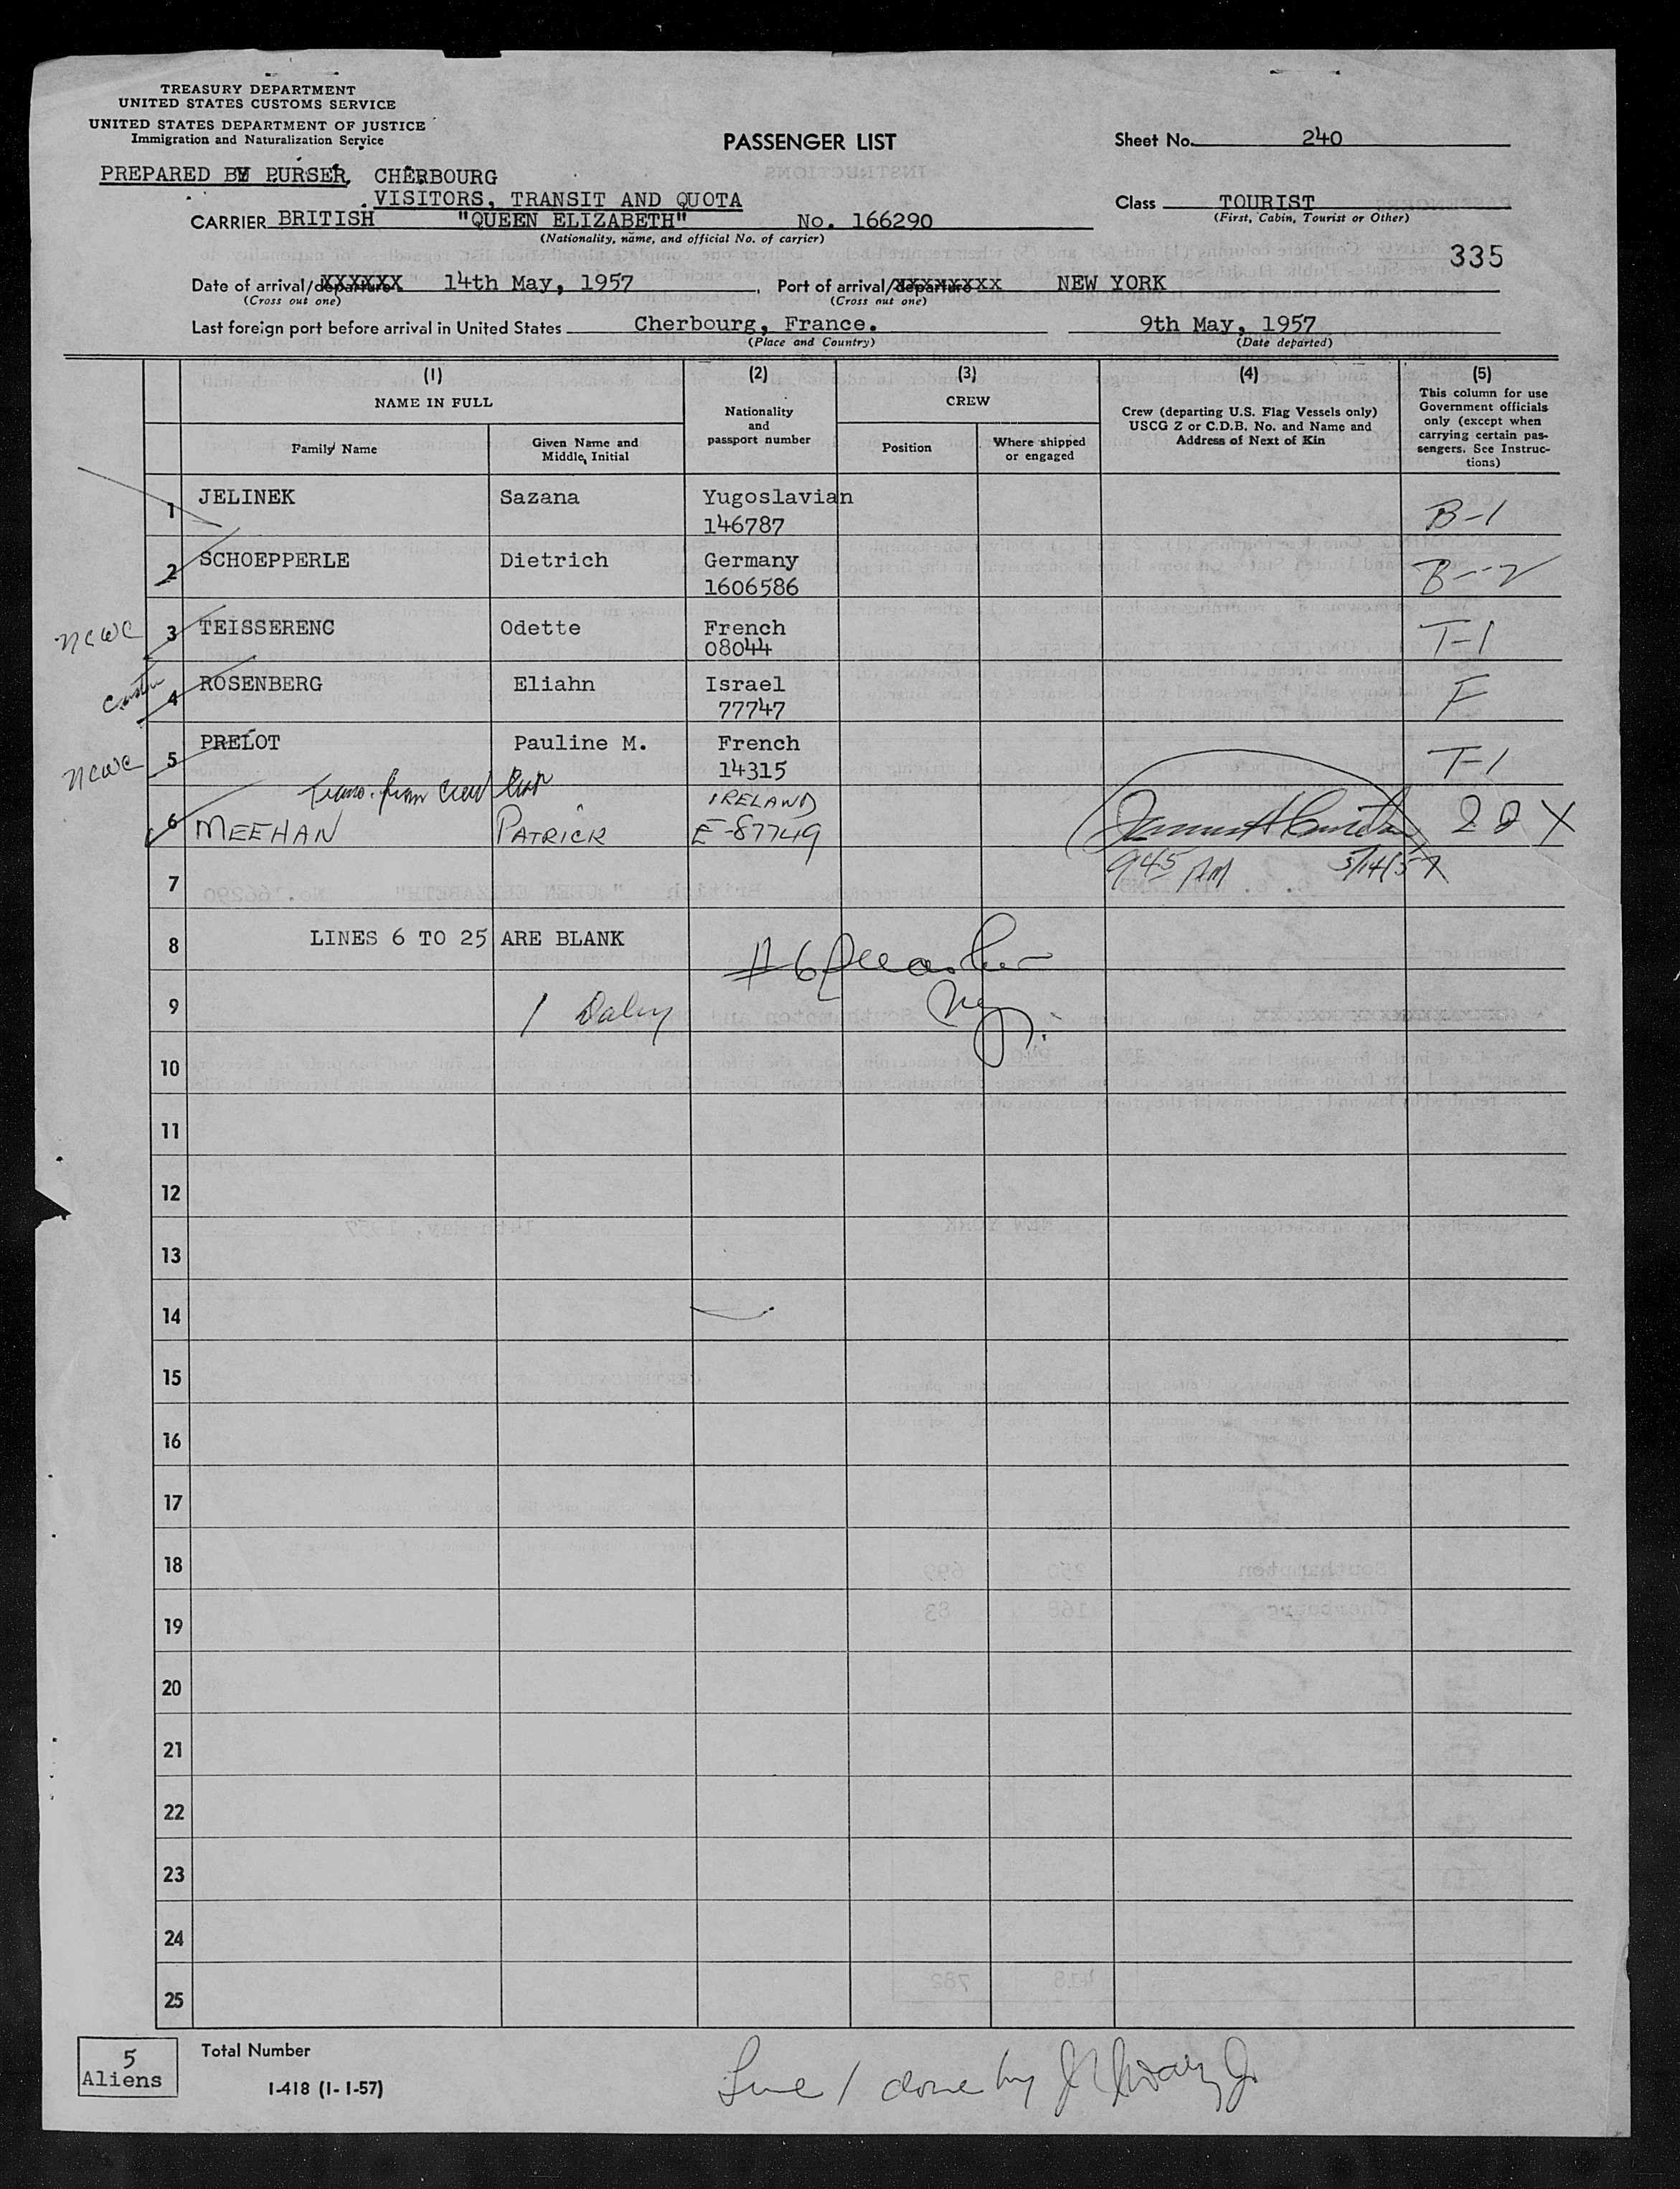 TREASURY DEPARTMENT
UNITED STATES CUSTOMS SERVICE
UNITED STATES DEPARTMENT OF JUSTICE
Immigration and Naturalization Service
PASSENGER LIST
Sheet No. 240
PREPARED BY PURSER, CHERBOURG
VISITORS, TRANSIT AND QUOTA
Class TOURIST
(First, Cabin, Tourist or Other)
CARRIER BRITISH "QUEEN ELIZABETH" No. 166290
(Nationality, name, and official No. of carrier)
335
Date of arrival/departure 14th May, 1957, Port of arrival/departure NEW YORK
(Cross out one) (Cross out one)
Last foreign port before arrival in United States Cherbourg, France. 9th May, 1957
(Place and Country) (Date departed)
(1) (2) (3) (4) (5)
NAME IN FULL
Family Name
Given Name and Middle Initial
Nationality and passport number
CREW
Position
Where shipped or engaged
Crew (departing U.S. Flag Vessels only)
USCG Z or C.D.B. No. and Name and
Address of Next of Kin
This column for use
Government officials
only (except when
carrying certain pas-
sengers. See Instruc-
tions)
1 JELINEK Sazana Yugoslavian
146787 B-1
2 SCHOEPPERLE Dietrich Germany
1606586 B-2
NCWC 3 TEISSERENC Odette French
08044 T-1
4 ROSENBERG Eliahn Israel
77747 F
NCWC 5 PRELOT Pauline M. French
14315 T-1
Trans. from crew list IRELAND
6 MEEHAN PATRICK E-87749
9 45 AM 5/14/57
7
8 LINES 6 TO 25 ARE BLANK
#6
9 1 Daley
10
11
12
13
14
15
16
17
18
19
20
21
22
23
24
25
5
Aliens
Total Number
I-418 (1-1-57)
Line 1 done by